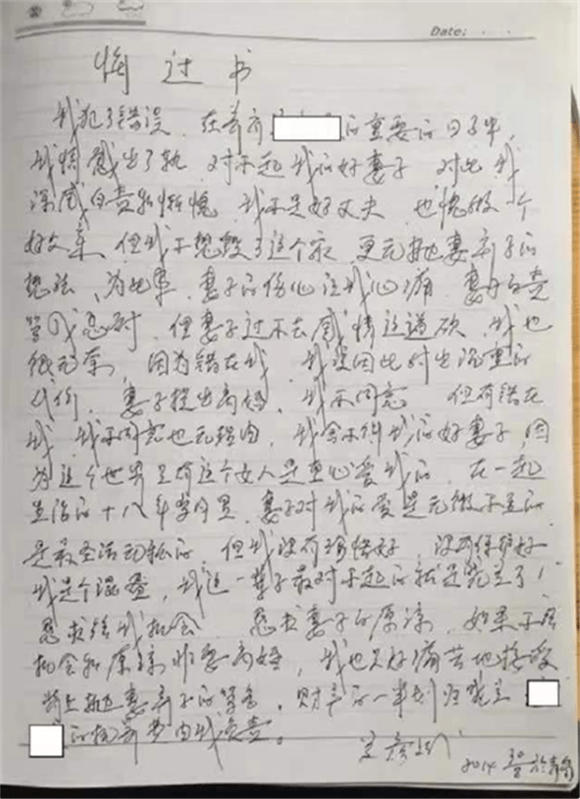 Date:
悔过书
我犯了错误,在前育的重要的日子中,
我情感出了轨,对不起我的好妻子,对此我
深感自责和惭愧,我不是好丈夫,也愧做个
好父亲,但我不想毁了这个家,更无抛妻弃子的
想法,为此事,妻子的伤心让我心痛,妻子的责
骂我忍耐,但妻子过不去感情这道砍,我也
很无奈,因为错在我,我要因此付出沉重的
代价,妻子提出离婚,我不同意,但有错在
我,我不同意也无理由,我舍不得我的好妻子,因
为这个世界只有这个女人是真心爱我的,在一起
生活的十八年岁月里,妻子对我的爱是无微不至的
是最圣洁无私的,但我没有珍惜好,没有保护好
我是个混蛋,我这一辈子最对不起的就是
恳求给我机会,恳求妻子的原谅,如果不给
机会和原谅非要离婚,我也只好痛苦地接受
背上抛妻弃子的骂名,财产的一半划归
的抚育费由我负责。
2014